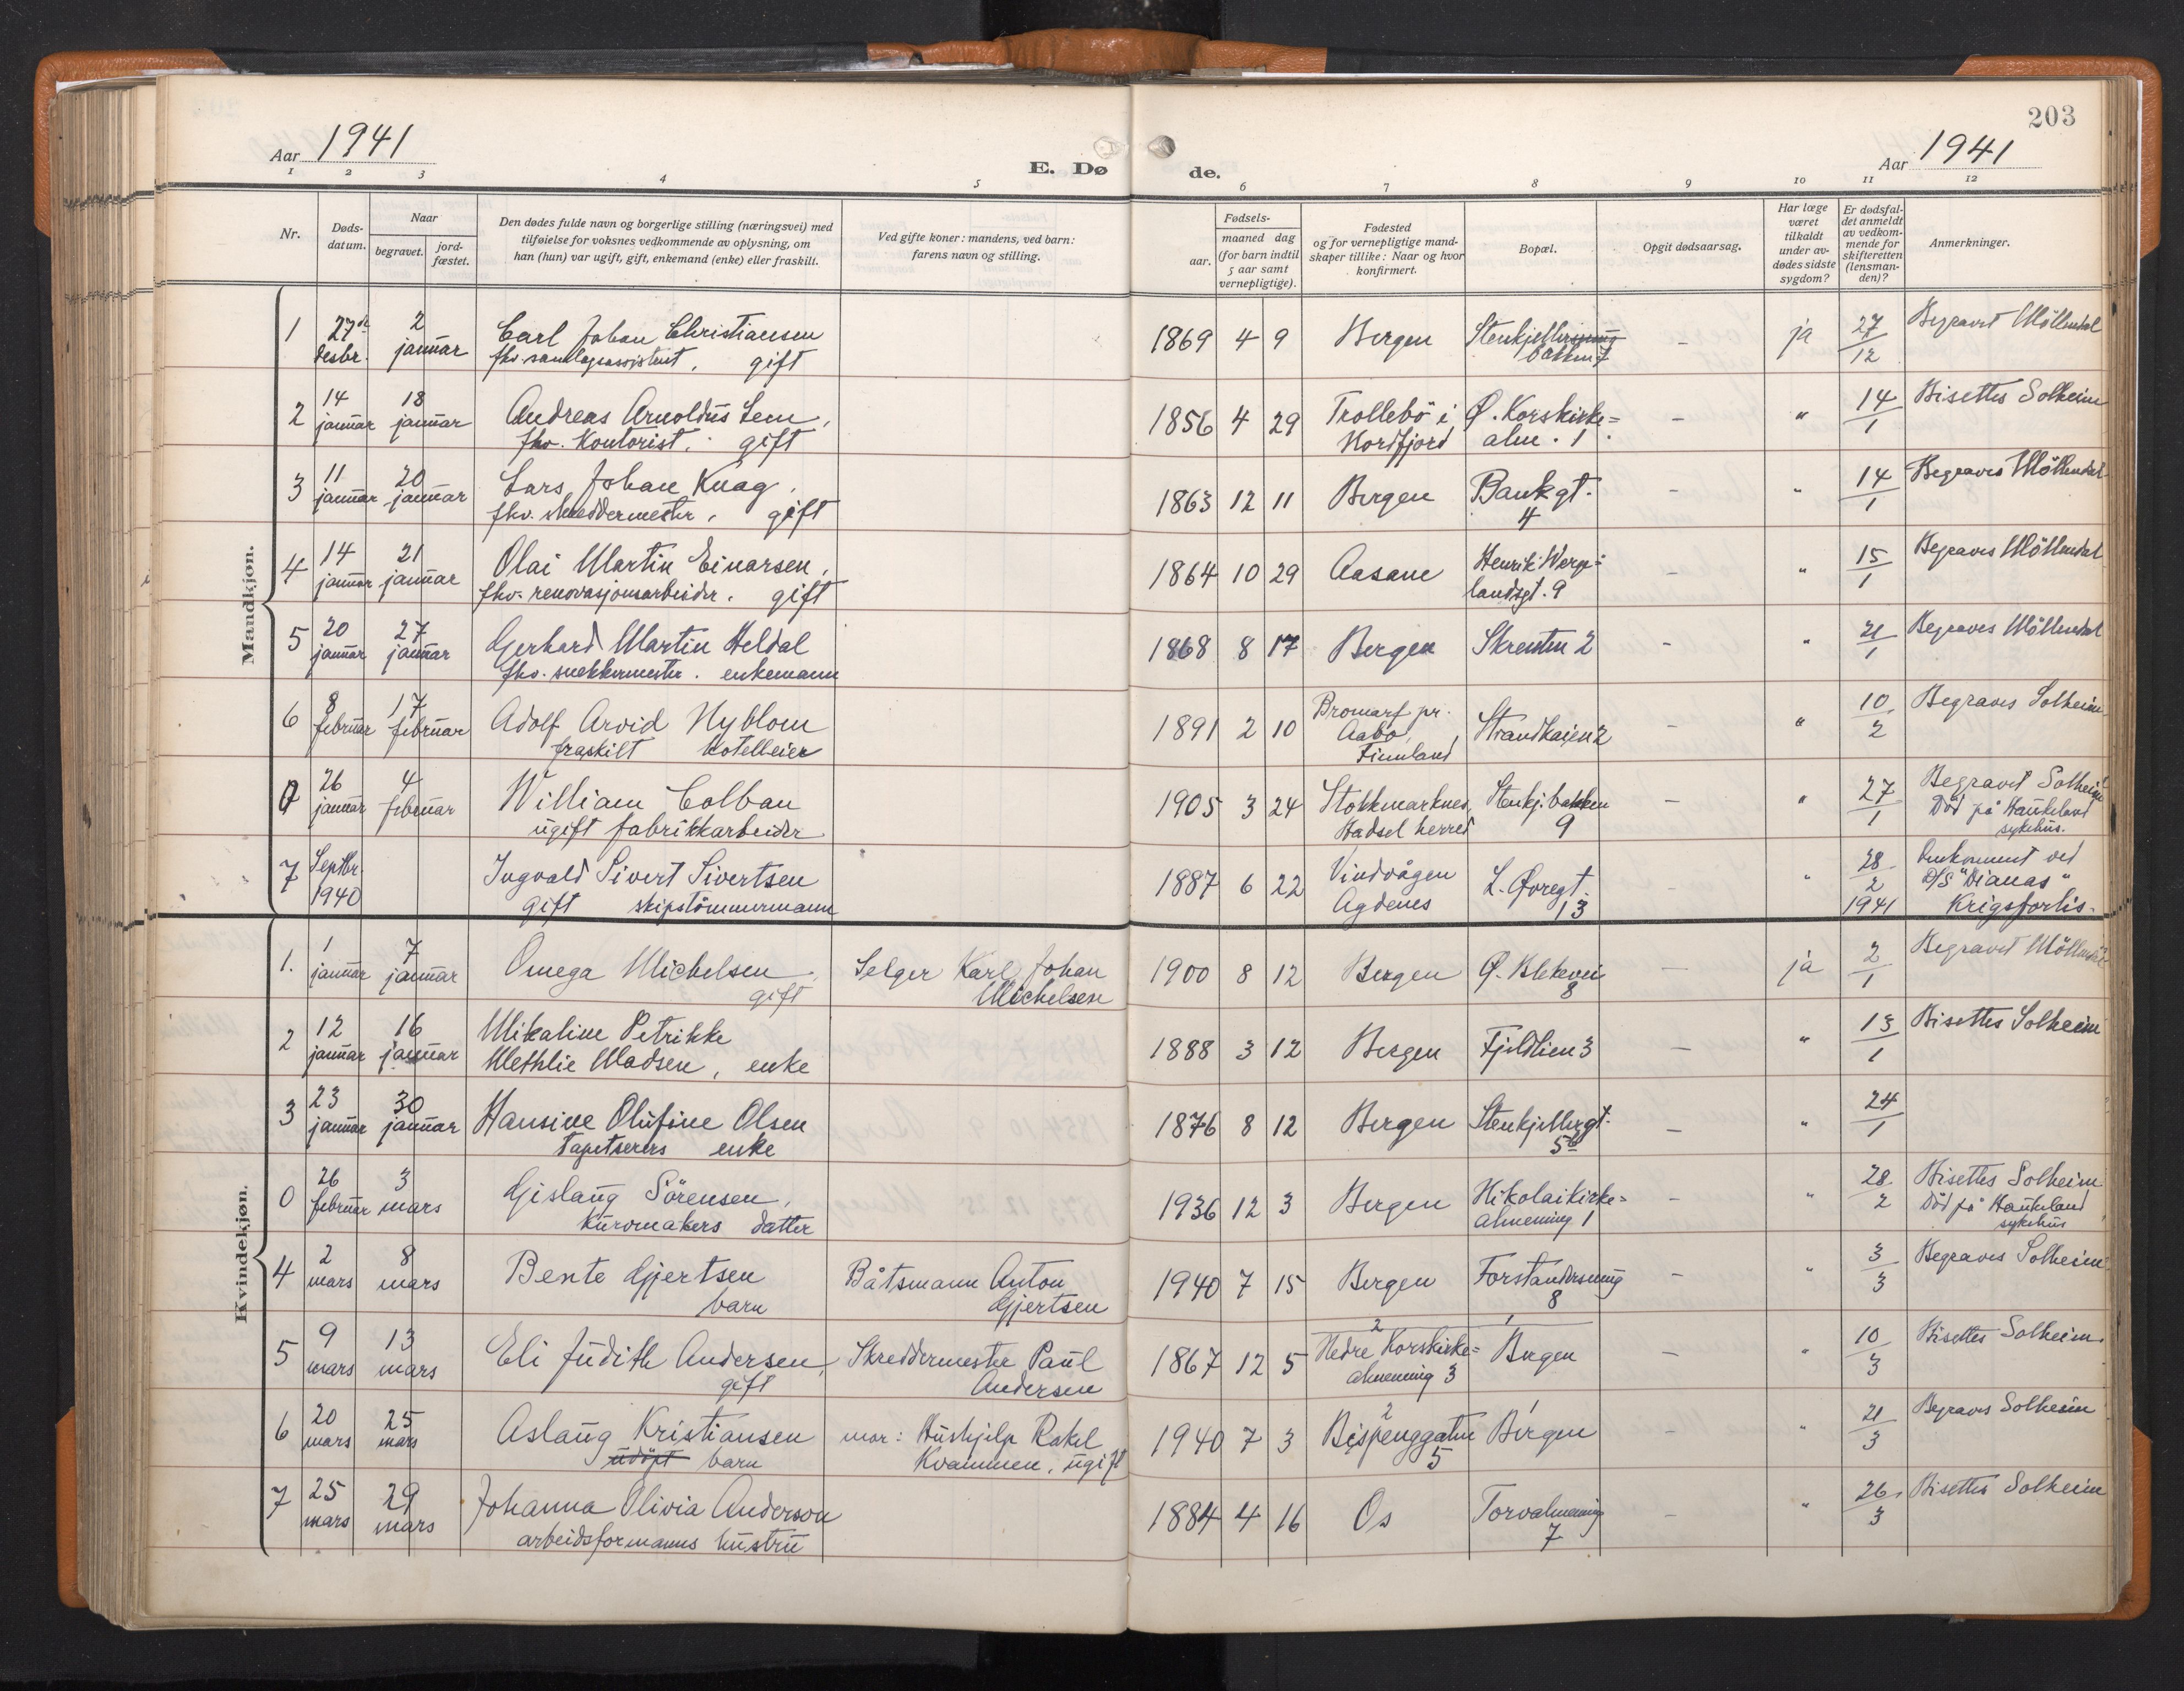 203
Aar 1941
E. Dø
de.
Aar 1941
1 2 3 4 5 6 7 8 9 10 11 12
Nr.
Døds-
datum.
Naar
begravet.
jord-
fæstet.
Den dødes fulde navn og borgerlige stilling (næringsvei) med
tilføielse for voksnes vedkommende av oplysning, om
han (hun) var ugift, gift, enkemand (enke) eller fraskilt.
Ved gifte koner: mandens, ved barn:
farens navn og stilling.
Fødsels-
aar.
maaned dag
(for barn indtil
5 aar samt
vernepligtige).
Fødested
og for vernepligtige mand-
skaper tillike: Naar og hvor
konfirmert.
Bopæl.
Opgit dødsaarsag.
Har læge
været
tilkaldt
under av-
dødes sidste
sygdom?
Er dødsfal-
det anmeldt
av vedkom-
mende for
skifteretten
(lensman-
den)?
Anmerkninger.
Mandkjøn.
1 27de 2 Carl Johan Christiansen 1869 4 9 Bergen - ja 27/12 Begravet Möllendal
desbr. januar gift bakken 7
2 14 18 Andreas Arnoldus Lem, 1856 4 29 Trollebö i Ø. Korskirke= - " 14/1 Bisettes Solheim
januar januar fhv. Kontorist. gift Nordfjord alm. 1
3 11 20 Lars Johan Knag, 1863 12 11 Bergen Bankgt. - " 14/1 Begraves Möllendal
januar januar fhv. skreddermester, gift 4
4 14 21 Olai Martin Einarsen, 1864 10 29 Aasane Henrik Werge= - " 15/1 Begraves Möllendal
januar januar fhv. renovasjonsarbeider. gift landsgt. 9
5 20 27 Gerhard Martin Heldal 1868 8 17 Bergen Skrenten 2 - " 21/1 Begraves Möllendal
januar januar fhv. snekkermester. enkemann
6 8 17 Adolf Arvid Nyblom 1891 2 10 Bromarf pr. Strandkaien 2 - " 10/2 Begraves Solheim
februar februar fraskilt hotelleier Aabo,
Finnland
0 26 4 William Colban 1905 3 24 Stokkmarknes, Stenkj.bakken - " 27/1 Begravet Solheim
januar februar ugift fabrikkarbeider Hadsel herred 9 Död på Haukeland
sykehus.
7 Septbr. Ingvald Sivert Sivertsen 1887 6 22 Vindvågen L. Øvregt. - " 28/2 Omkommet ved
1940 gift skipstömmermann Agdenes 13 1941 D/S "Dianas"
Krigsforlis.
Kvindekjøn.
1. 1 7 Omega Michelsen, Selger Karl Johan 1900 8 12 Bergen Ø. Blekevei - ja 2/1 Begravet Möllendal
januar januar gift Michelsen 8
2 12 16 Mikaline Petrikke 1888 3 12 Bergen Fjeldlien 3 - " 13/1 Bisettes Solheim
januar januar Methlie Madsen, enke
3 23 30 Hansine Olufine Olsen 1876 8 12 Bergen Stenkjellergt. - " 24/1
januar januar tapetserers enke 5b
0 26 3 Gislaug Sörensen, 1936 12 3 Bergen Nikolaikirke= - " 28/2 Bisettes Solheim
februar mars kurvmakers datter almenning 1 Död på Haukeland
sykehus
4 2 8 Bente Gjertsen Båtsmann Anton 1940 7 15 Bergen Forstandersmug - " 3/3 Begraves Solheim
mars mars barn Gjertsen 8
5 9 13 Eli Judith Andersen, Skreddermester Paul 1867 12 5 2 Nedre Korskirke= 1 Bergen - " 10/3 Bisettes Solheim.
mars mars gift Andersen almenning 3
6 20 25 Aslaug Kristiansen mor: Hushjelp Rakel 1940 7 3 2 Bispenggaten 1 Bergen - " 21/3 Begraves Solheim
mars mars udöpt barn Kvammen, ugift 5
7 25 29 Johanna Olivia Anderson 1884 4 16 Os Torvalmenning - " 26/3 Bisettes Solheim
mars mars arbeidsformanns hustru 7